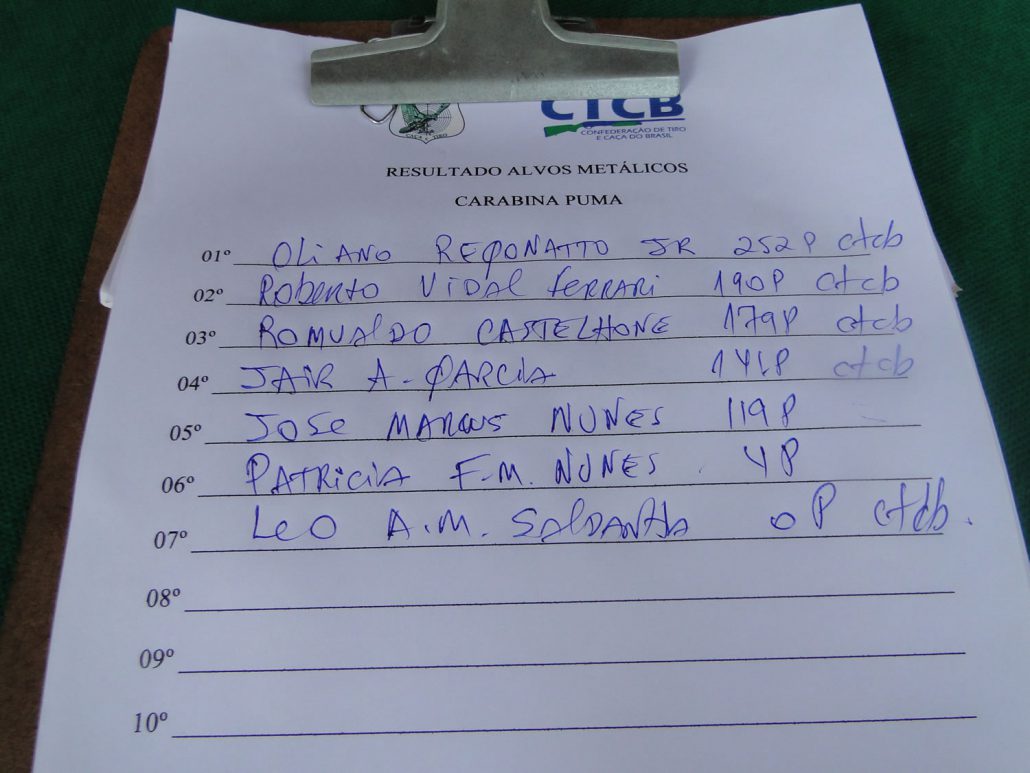 CAÇA E TIRO
CTCB
CONFEDERAÇÃO DE TIRO
E CAÇA DO BRASIL
RESULTADO ALVOS METÁLICOS
CARABINA PUMA
01º OLIANO REGONATTO JR 252P ctcb
02º Roberto Vidal Ferrari 190P ctcb
03º ROMUALDO CASTELHONE 179P ctcb
04º JAIR A. GARCIA ctcb
05º JOSE MARCUS NUNES 119P
06º PATRICIA F.M. NUNES. 4P
07º LEO A.M. SALDANHA 0P ctcb.
08º
09º
10º